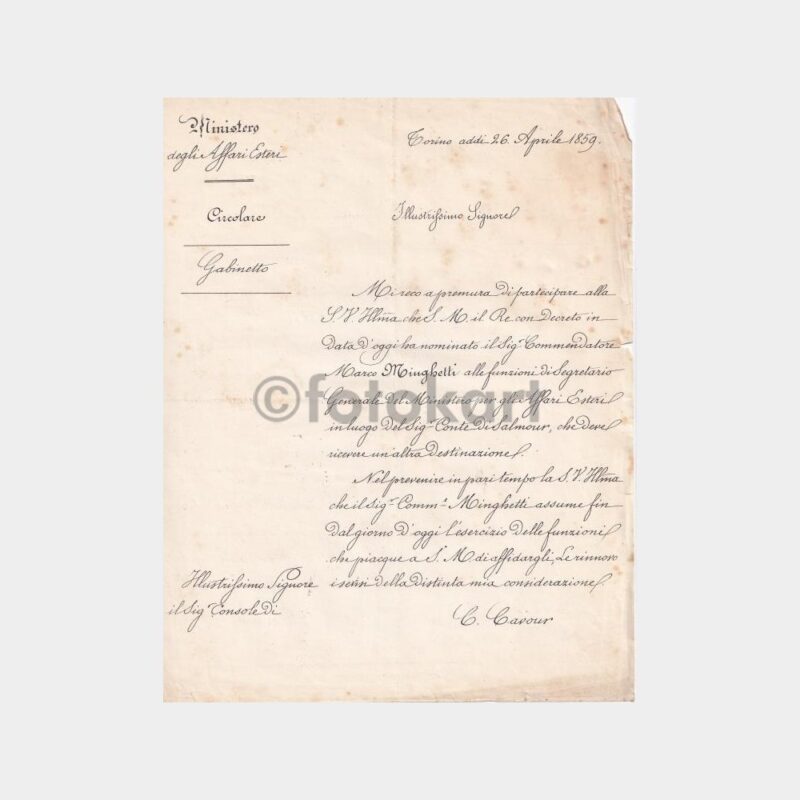 Ministero
degli Affari Esteri
Circolare
Gabinetto
Torino addì 26. Aprile 1859.
Illustrissimo Signore
Mi reco a premura di partecipare alla
S. V. Illma che S. M. il Re con Decreto in
data d'oggi ha nominato il Sigr. Commendatore
Marco Minghetti alle funzioni di Segretario
Generale del Ministero per gli Affari Esteri
in luogo del Sigr. Conte di Salmour, che deve
ricevere un'altra destinazione.
Nel prevenire in pari tempo la S. V. Illma
che il Sigr. Comme. Minghetti assume fin
dal giorno d'oggi l'esercizio delle funzioni
che piacque a S. M. di affidargli, Le rinnovo
i sensi della distinta mia considerazione.
C. Cavour
Illustrissimo Signore
il Sigr. Console di
©fotokart